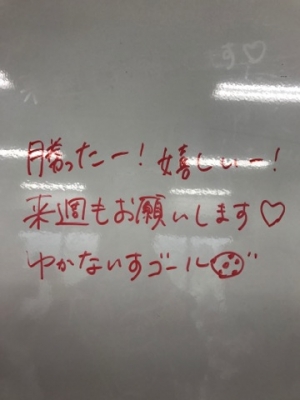 す♡
勝ったー！嬉しぃー！
来週もお願いします♡
ゆかないすゴール